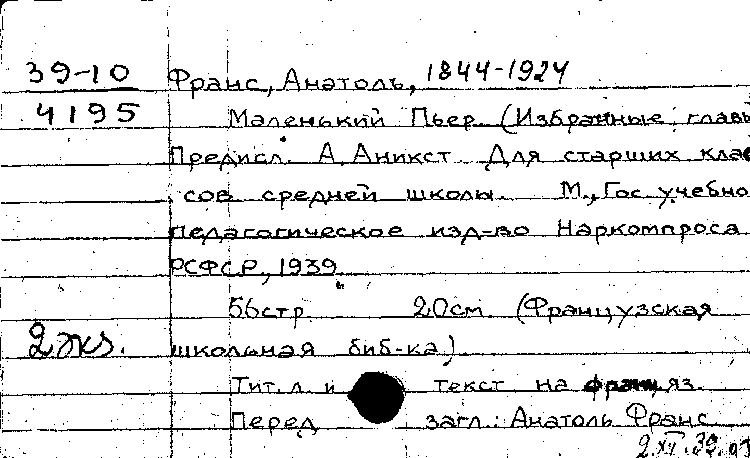 39-10 Франс, Анатоль, 1844-1924
4195 Маленький Пьер. (Избранные главы
Предисл. А. Аникст. Для старших клас
сов средней школы. М., Гос. учебно
педагогическое изд-во Наркомпроса
РСФСР, 1939
56стр. 20см. (Французская
2 экз. школьная биб-ка)
Тит. л. и текст на франц. яз.
Перед загл.: Анатоль Франс
2 XII. 39.